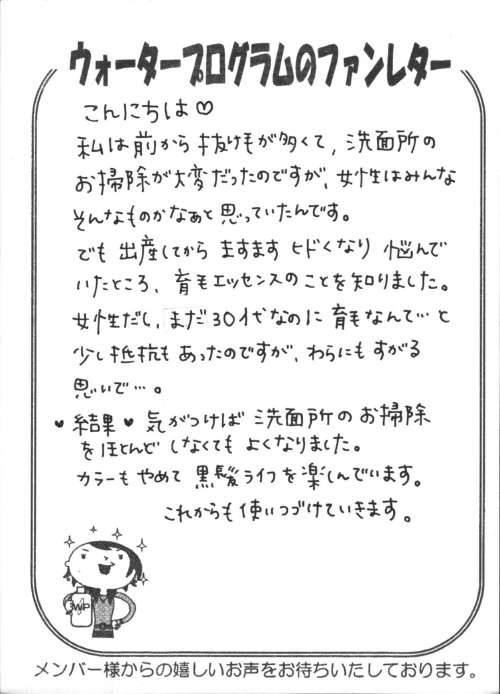 ウォータープログラムのファンレター
こんにちは♡
私は前から抜け毛が多くて、洗面所の
お掃除が大変だったのですが、女性はみんな
そんなものかなぁと思っていたんです。
でも出産してからますますヒドくなり悩んで
いたところ、育毛エッセンスのことを知りました。
女性だし、まだ30代なのに育毛なんて…と
少し抵抗もあったのですが、わらにもすがる
思いで…。
♥結果♥気がつけば洗面所のお掃除
をほとんどしなくてもよくなりました。
カラーもやめて黒髪ライフを楽しんでいます。
これからも使いつづけていきます。
WP
メンバー様からの嬉しいお声をお待ちいたしております。